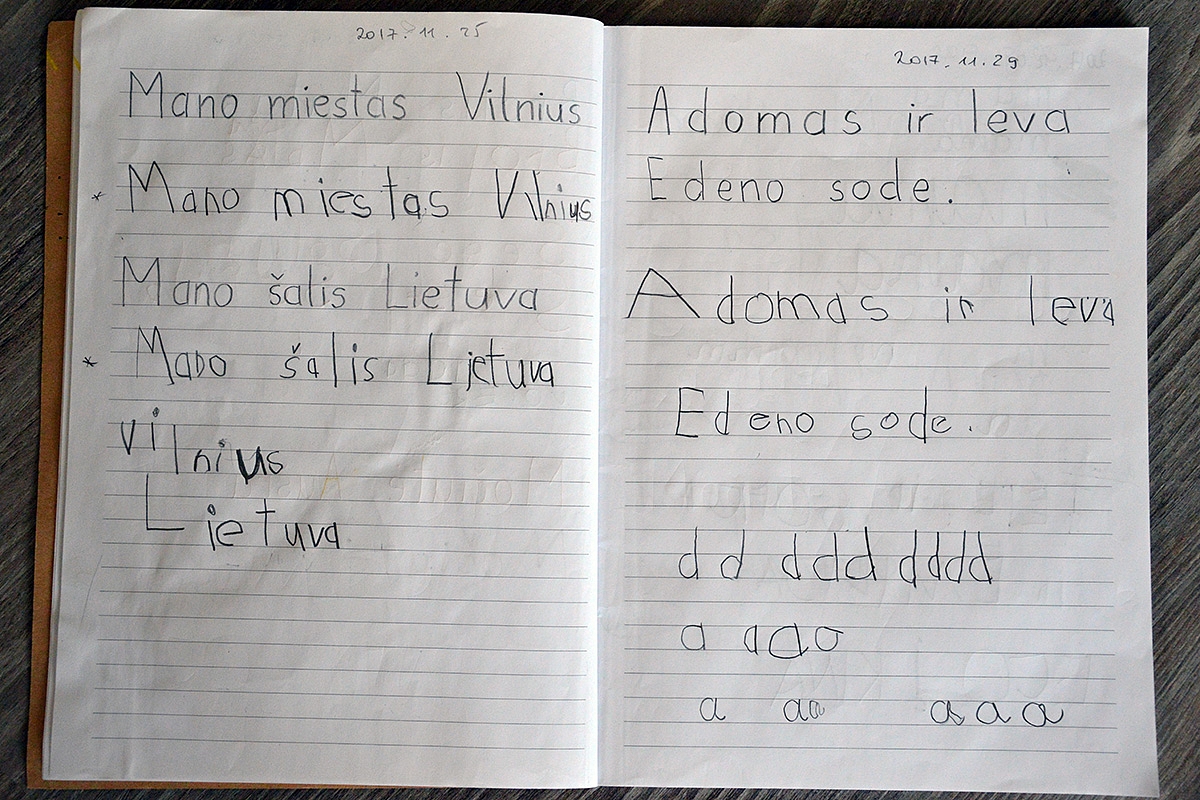 2017.11.25
Mano miestas Vilnius
* Mano miestas Vilnius
Mano šalis Lietuva
* Mano šalis Lietuva
Vilnius
Lietuva
2017.11.29
Adomas ir Ieva
Edeno sode.
Adomas ir Ieva
Edeno sode.
d d d d d d d d d
a a a a
a a a a a a